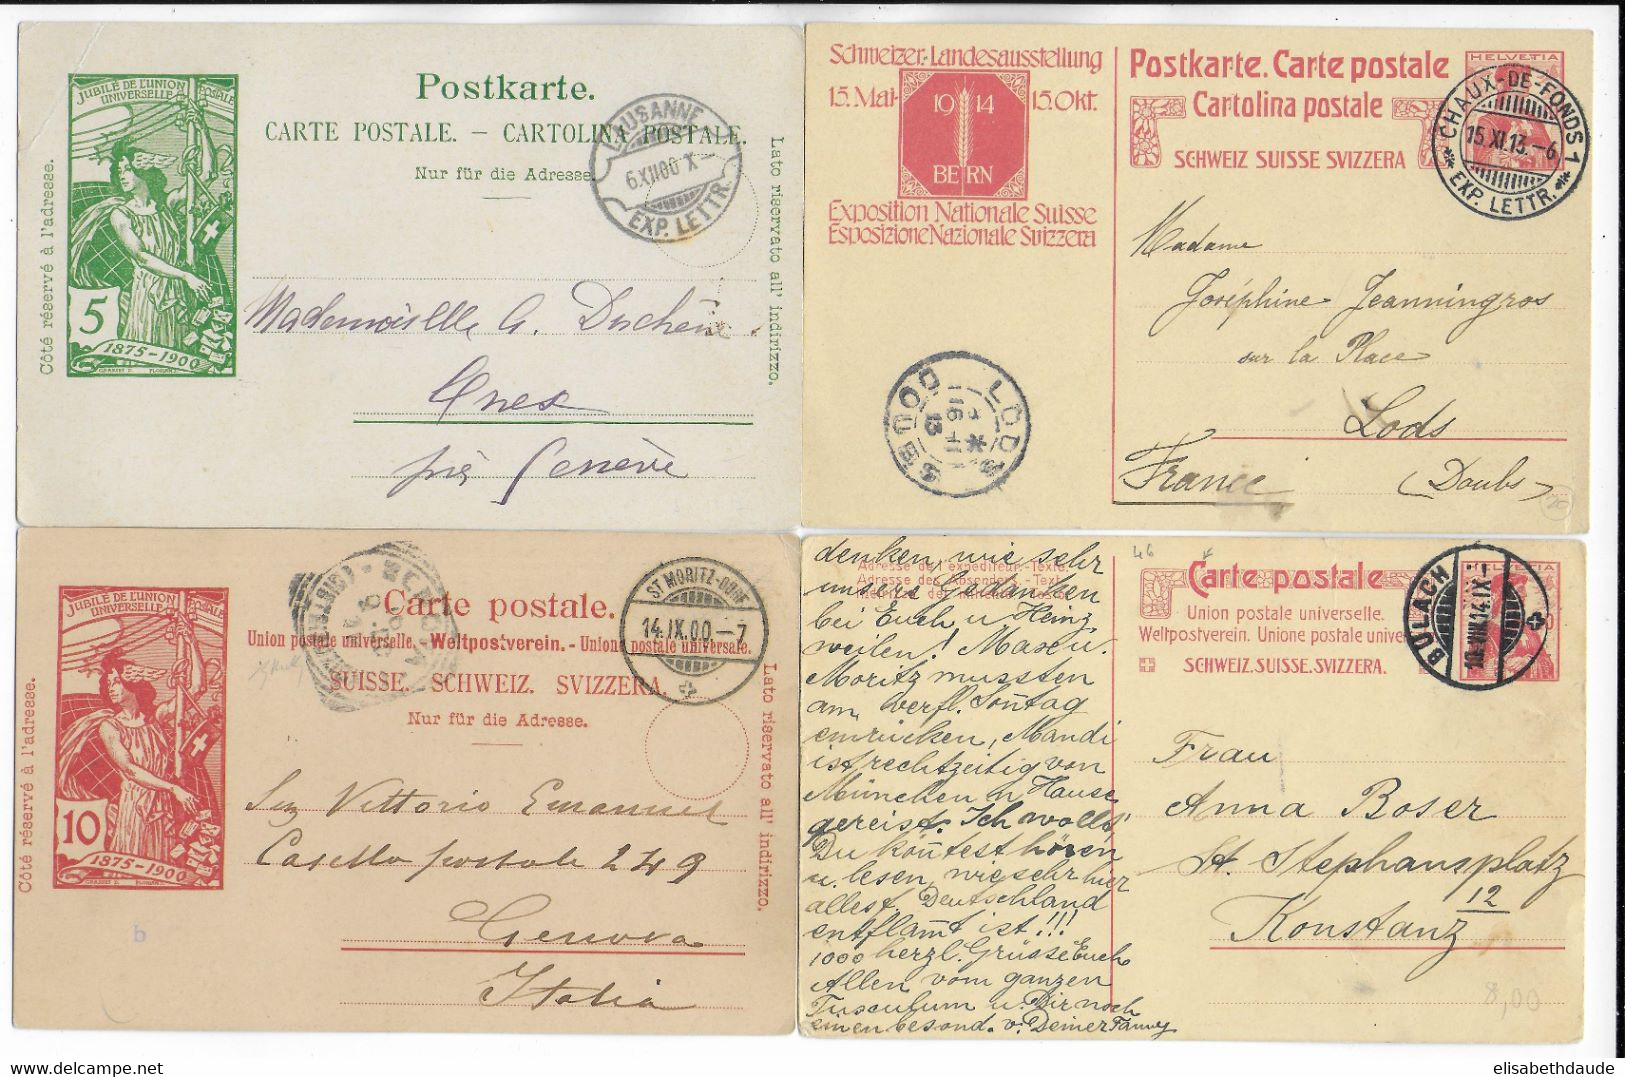 JUBILÉ DE L'UNION
UNIVERSELLE POSTALE
5
1875-1900
GRASSET D.
Côté réservé à l'adresse.
Postkarte.
CARTE POSTALE. — CARTOLINA POSTALE.
Nur für die Adresse.
Lato riservato all' indirizzo.
LAUSANNE
6.XII.00 X
EXP. LETTR.
Mademoiselle A. Duchêne
Onex
près Genève
Schweizer. Landesausstellung
15. Mai - 15. Okt.
1914
BERN
Exposition Nationale Suisse
Esposizione Nazionale Svizzera
Postkarte. Carte postale
Cartolina postale
SCHWEIZ SUISSE SVIZZERA
HELVETIA
CHAUX-DE-FONDS 1
15.XI.13.-6
EXP. LETTR.
Madame
Joséphine Jeanningros
sur la Place
Lods
France (Doubs)
LODS
16 -11
13
DOUBS
JUBILÉ DE L'UNION
UNIVERSELLE POSTALE
10
1875-1900
GRASSET D.
Côté réservé à l'adresse.
Carte postale.
Union postale universelle. - Weltpostverein. - Unione postale universale.
SUISSE. SCHWEIZ. SVIZZERA.
Nur für die Adresse.
Lato riservato all' indirizzo.
ST MORITZ-DORF
14.IX.00-7
Vittorio Emanuel
Casella postale 249
Genova
Italia
b
denken, wie sehr
unsere Gedanken
bei Euch u. Heinz
weilen! Max u.
Moritz mussten
am verfl. Sonntag
einrücken, Mandi
ist rechtzeitig von
München n. Hause
gereist. Ich wollt'
Du könntest hören
u. lesen, wie sehr hier
alles f. Deutschland
entflammt ist!!!
1000 herzl. Grüsse Euch
Allen vom ganzen
Tusculum u. Dir noch
einen besond. v. Deiner Fanny
Adresse de l'expéditeur. - Texte.
Adresse des Absenders. - Text.
46
Carte postale
Union postale universelle.
Weltpostverein. Unione postale univer
SCHWEIZ. SUISSE. SVIZZERA.
HELVETIA
BÜLACH
10.VIII.14.IX-
Frau
Anna Boser
St. Stephansplatz
12
Konstanz
8,00
elisabethdaude
delcampe.net